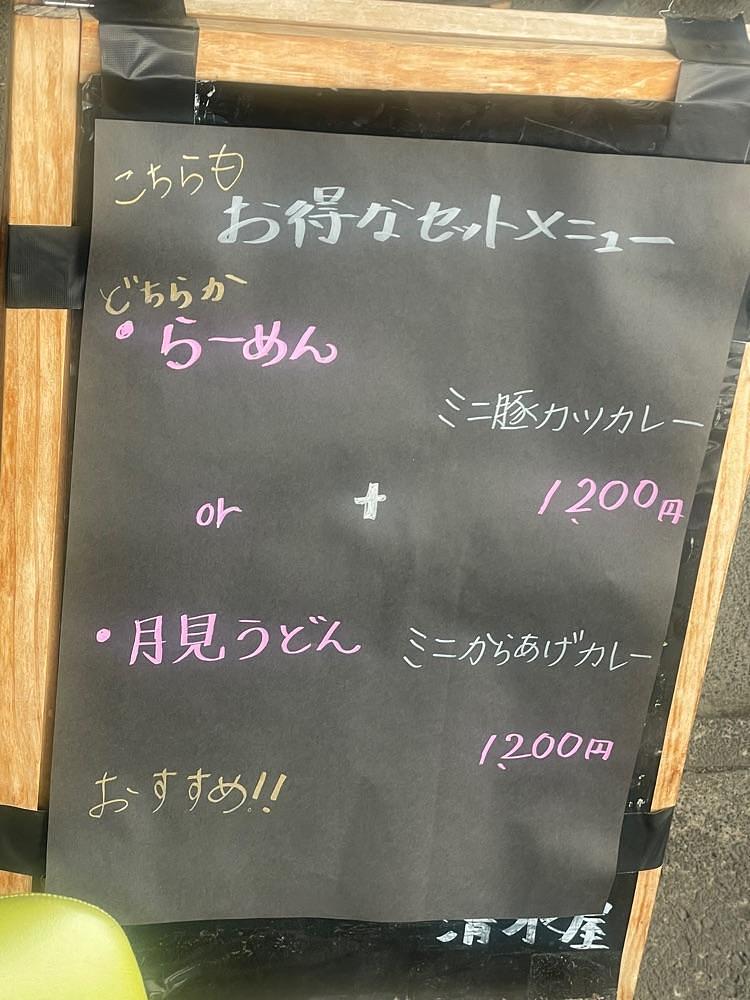 こちらも
お得なセットメニュー
どちらか
・らーめん
ミニ豚カツカレー
1,200円
or
+
・月見うどん
ミニからあげカレー
1,200円
おすすめ!!
清水屋